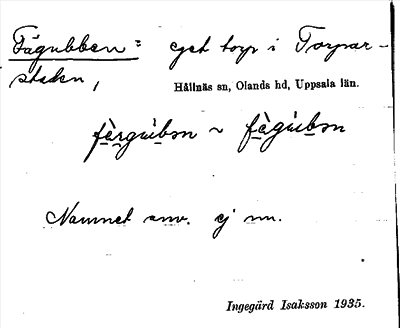 Fägubben = eget torp i Torpar-
staden,
Hållnäs sn, Olands hd, Uppsala län.
fàrgúbən ~ fàgúbən
Namnet anv. ej nu.
Ingegärd Isaksson 1935.